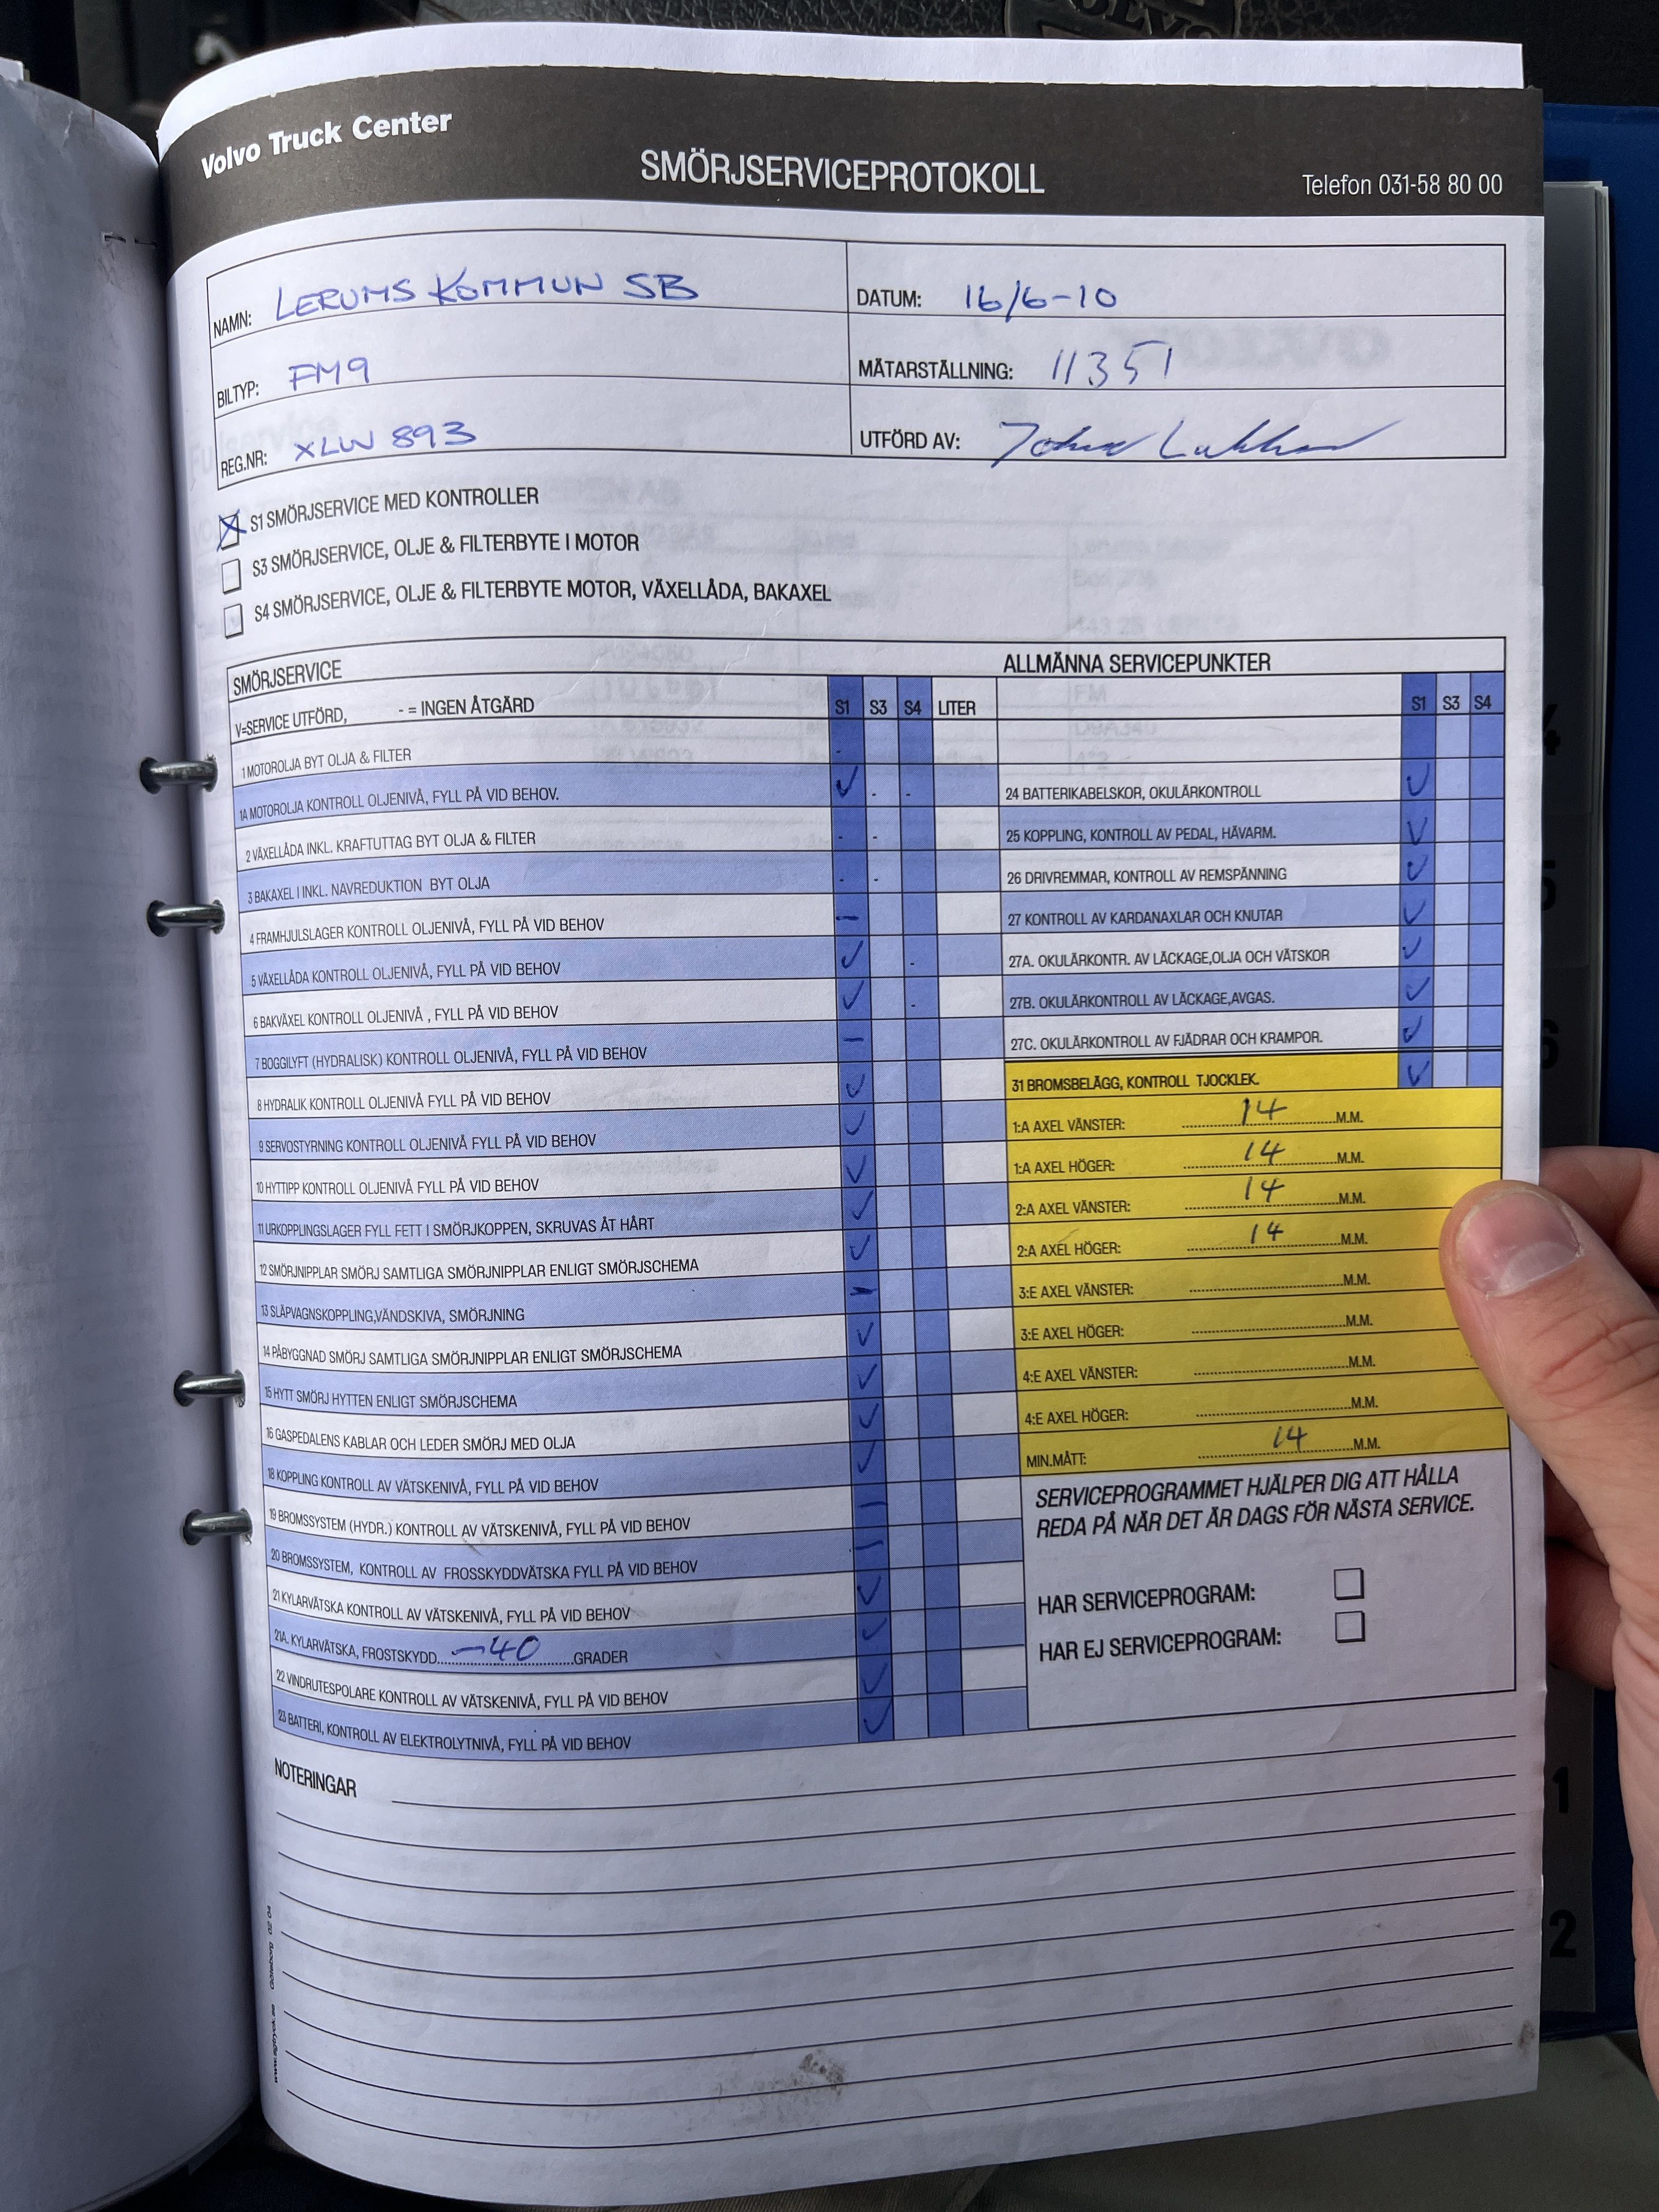 Volvo Truck Center
SMÖRJSERVICEPROTOKOLL
Telefon 031-58 80 00
NAMN: LERUMS KOMMUN SB
DATUM: 16/6-10
BILTYP: FM9
MÄTARSTÄLLNING: 11351
REG.NR: XLW 893
UTFÖRD AV:
S1 SMÖRJSERVICE MED KONTROLLER
S3 SMÖRJSERVICE, OLJE & FILTERBYTE I MOTOR
S4 SMÖRJSERVICE, OLJE & FILTERBYTE MOTOR, VÄXELLÅDA, BAKAXEL
SMÖRJSERVICE
V=SERVICE UTFÖRD, - = INGEN ÅTGÄRD S1 S3 S4 LITER
1 MOTOROLJA BYT OLJA & FILTER -
1A MOTOROLJA KONTROLL OLJENIVÅ, FYLL PÅ VID BEHOV. ✓ - -
2 VÄXELLÅDA INKL. KRAFTUTTAG BYT OLJA & FILTER - -
3 BAKAXEL I INKL. NAVREDUKTION BYT OLJA - -
4 FRAMHJULSLAGER KONTROLL OLJENIVÅ, FYLL PÅ VID BEHOV –
5 VÄXELLÅDA KONTROLL OLJENIVÅ, FYLL PÅ VID BEHOV ✓ -
6 BAKVÄXEL KONTROLL OLJENIVÅ , FYLL PÅ VID BEHOV ✓ -
7 BOGGILYFT (HYDRALISK) KONTROLL OLJENIVÅ, FYLL PÅ VID BEHOV –
8 HYDRALIK KONTROLL OLJENIVÅ FYLL PÅ VID BEHOV ✓
9 SERVOSTYRNING KONTROLL OLJENIVÅ FYLL PÅ VID BEHOV ✓
10 HYTTIPP KONTROLL OLJENIVÅ FYLL PÅ VID BEHOV ✓
11 URKOPPLINGSLAGER FYLL FETT I SMÖRJKOPPEN, SKRUVAS ÅT HÅRT ✓
12 SMÖRJNIPPLAR SMÖRJ SAMTLIGA SMÖRJNIPPLAR ENLIGT SMÖRJSCHEMA ✓
13 SLÄPVAGNSKOPPLING,VÄNDSKIVA, SMÖRJNING –
14 PÅBYGGNAD SMÖRJ SAMTLIGA SMÖRJNIPPLAR ENLIGT SMÖRJSCHEMA ✓
15 HYTT SMÖRJ HYTTEN ENLIGT SMÖRJSCHEMA ✓
16 GASPEDALENS KABLAR OCH LEDER SMÖRJ MED OLJA ✓
18 KOPPLING KONTROLL AV VÄTSKENIVÅ, FYLL PÅ VID BEHOV ✓
19 BROMSSYSTEM (HYDR.) KONTROLL AV VÄTSKENIVÅ, FYLL PÅ VID BEHOV –
20 BROMSSYSTEM, KONTROLL AV FROSSKYDDVÄTSKA FYLL PÅ VID BEHOV –
21 KYLARVÄTSKA KONTROLL AV VÄTSKENIVÅ, FYLL PÅ VID BEHOV ✓
21A. KYLARVÄTSKA, FROSTSKYDD -40 GRADER ✓
22 VINDRUTESPOLARE KONTROLL AV VÄTSKENIVÅ, FYLL PÅ VID BEHOV ✓
23 BATTERI, KONTROLL AV ELEKTROLYTNIVÅ, FYLL PÅ VID BEHOV ✓
ALLMÄNNA SERVICEPUNKTER
S1 S3 S4
24 BATTERIKABELSKOR, OKULÄRKONTROLL ✓
25 KOPPLING, KONTROLL AV PEDAL, HÄVARM. ✓
26 DRIVREMMAR, KONTROLL AV REMSPÄNNING ✓
27 KONTROLL AV KARDANAXLAR OCH KNUTAR ✓
27A. OKULÄRKONTR. AV LÄCKAGE,OLJA OCH VÄTSKOR ✓
27B. OKULÄRKONTROLL AV LÄCKAGE,AVGAS. ✓
27C. OKULÄRKONTROLL AV FJÄDRAR OCH KRAMPOR. ✓
31 BROMSBELÄGG, KONTROLL TJOCKLEK. ✓
1:A AXEL VÄNSTER: 14 M.M.
1:A AXEL HÖGER: 14 M.M.
2:A AXEL VÄNSTER: 14 M.M.
2:A AXEL HÖGER: 14 M.M.
3:E AXEL VÄNSTER: M.M.
3:E AXEL HÖGER: M.M.
4:E AXEL VÄNSTER: M.M.
4:E AXEL HÖGER: M.M.
MIN.MÅTT: 14 M.M.
SERVICEPROGRAMMET HJÄLPER DIG ATT HÅLLA
REDA PÅ NÄR DET ÄR DAGS FÖR NÄSTA SERVICE.
HAR SERVICEPROGRAM:
HAR EJ SERVICEPROGRAM:
NOTERINGAR
4
5
6
1
2